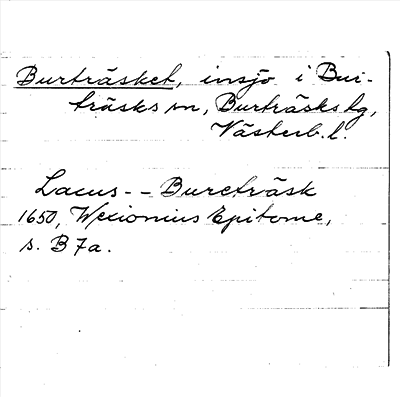 Burträsket, insjö i Bur-
träsks sn, Burträsks tg,
Västerb. l.
Lacus - - Bureträsk
1650, Wexionius Epitome,
s. B 7a.